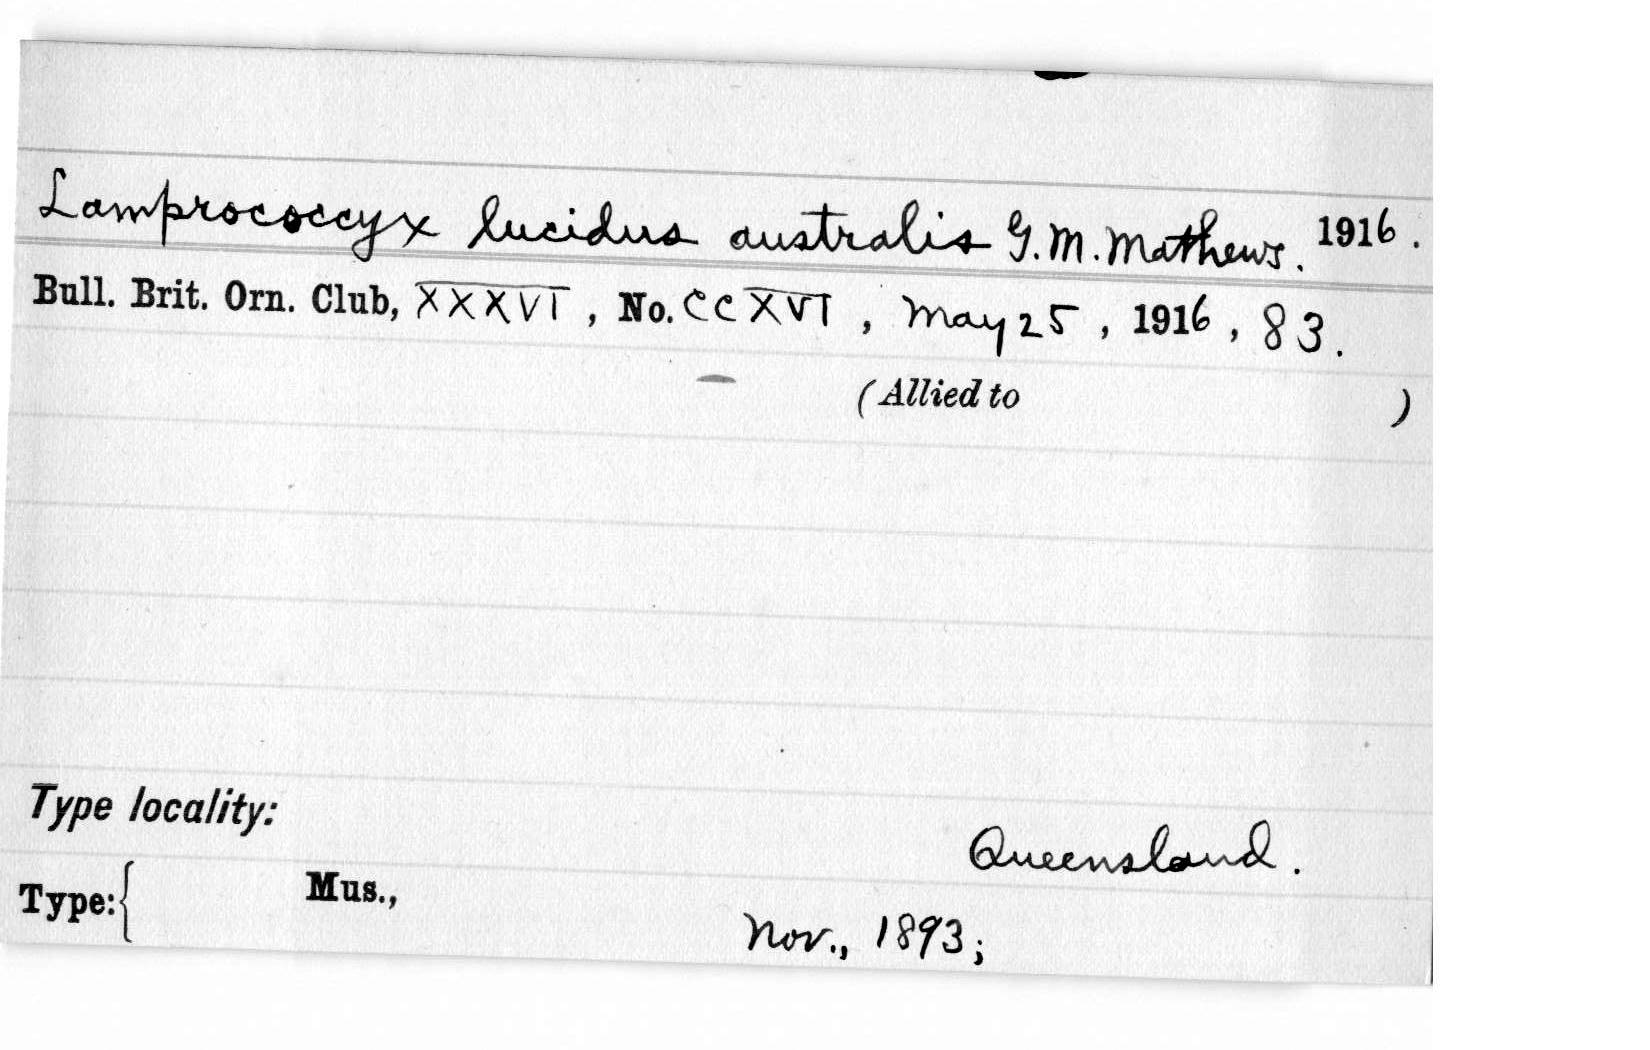 Lamprococcyx lucidus australis G.M. Mathews. 1916.
Bull. Brit. Orn. Club, XXXVI, No. CCXVI, May 25, 1916, 83.
(Allied to )
Type locality:
Queensland.
Type:{ Mus.,
Nov., 1893;